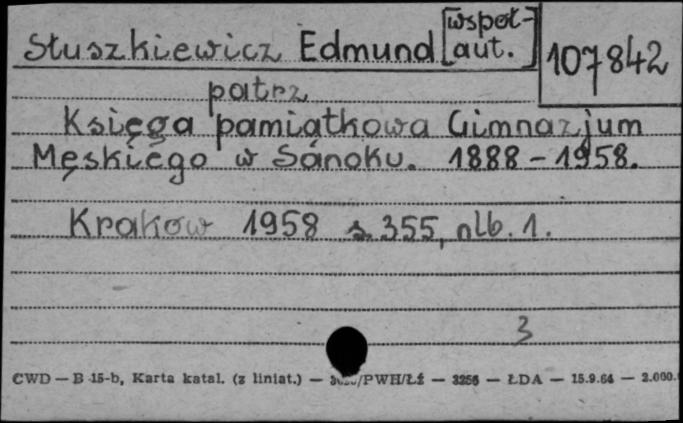 Słuszkiewicz Edmund [współ-
aut.]
107842
patrz
Księga pamiątkowa Gimnazjum
Męskiego w Sanoku. 1888-1958.
Kraków 1958 s. 355, nlb. 1.
3
CWD — B 15-b, Karta katal. (z liniat.) — /PWH/Łź — 3256 — ŁDA — 15.9.64 — 2.000.